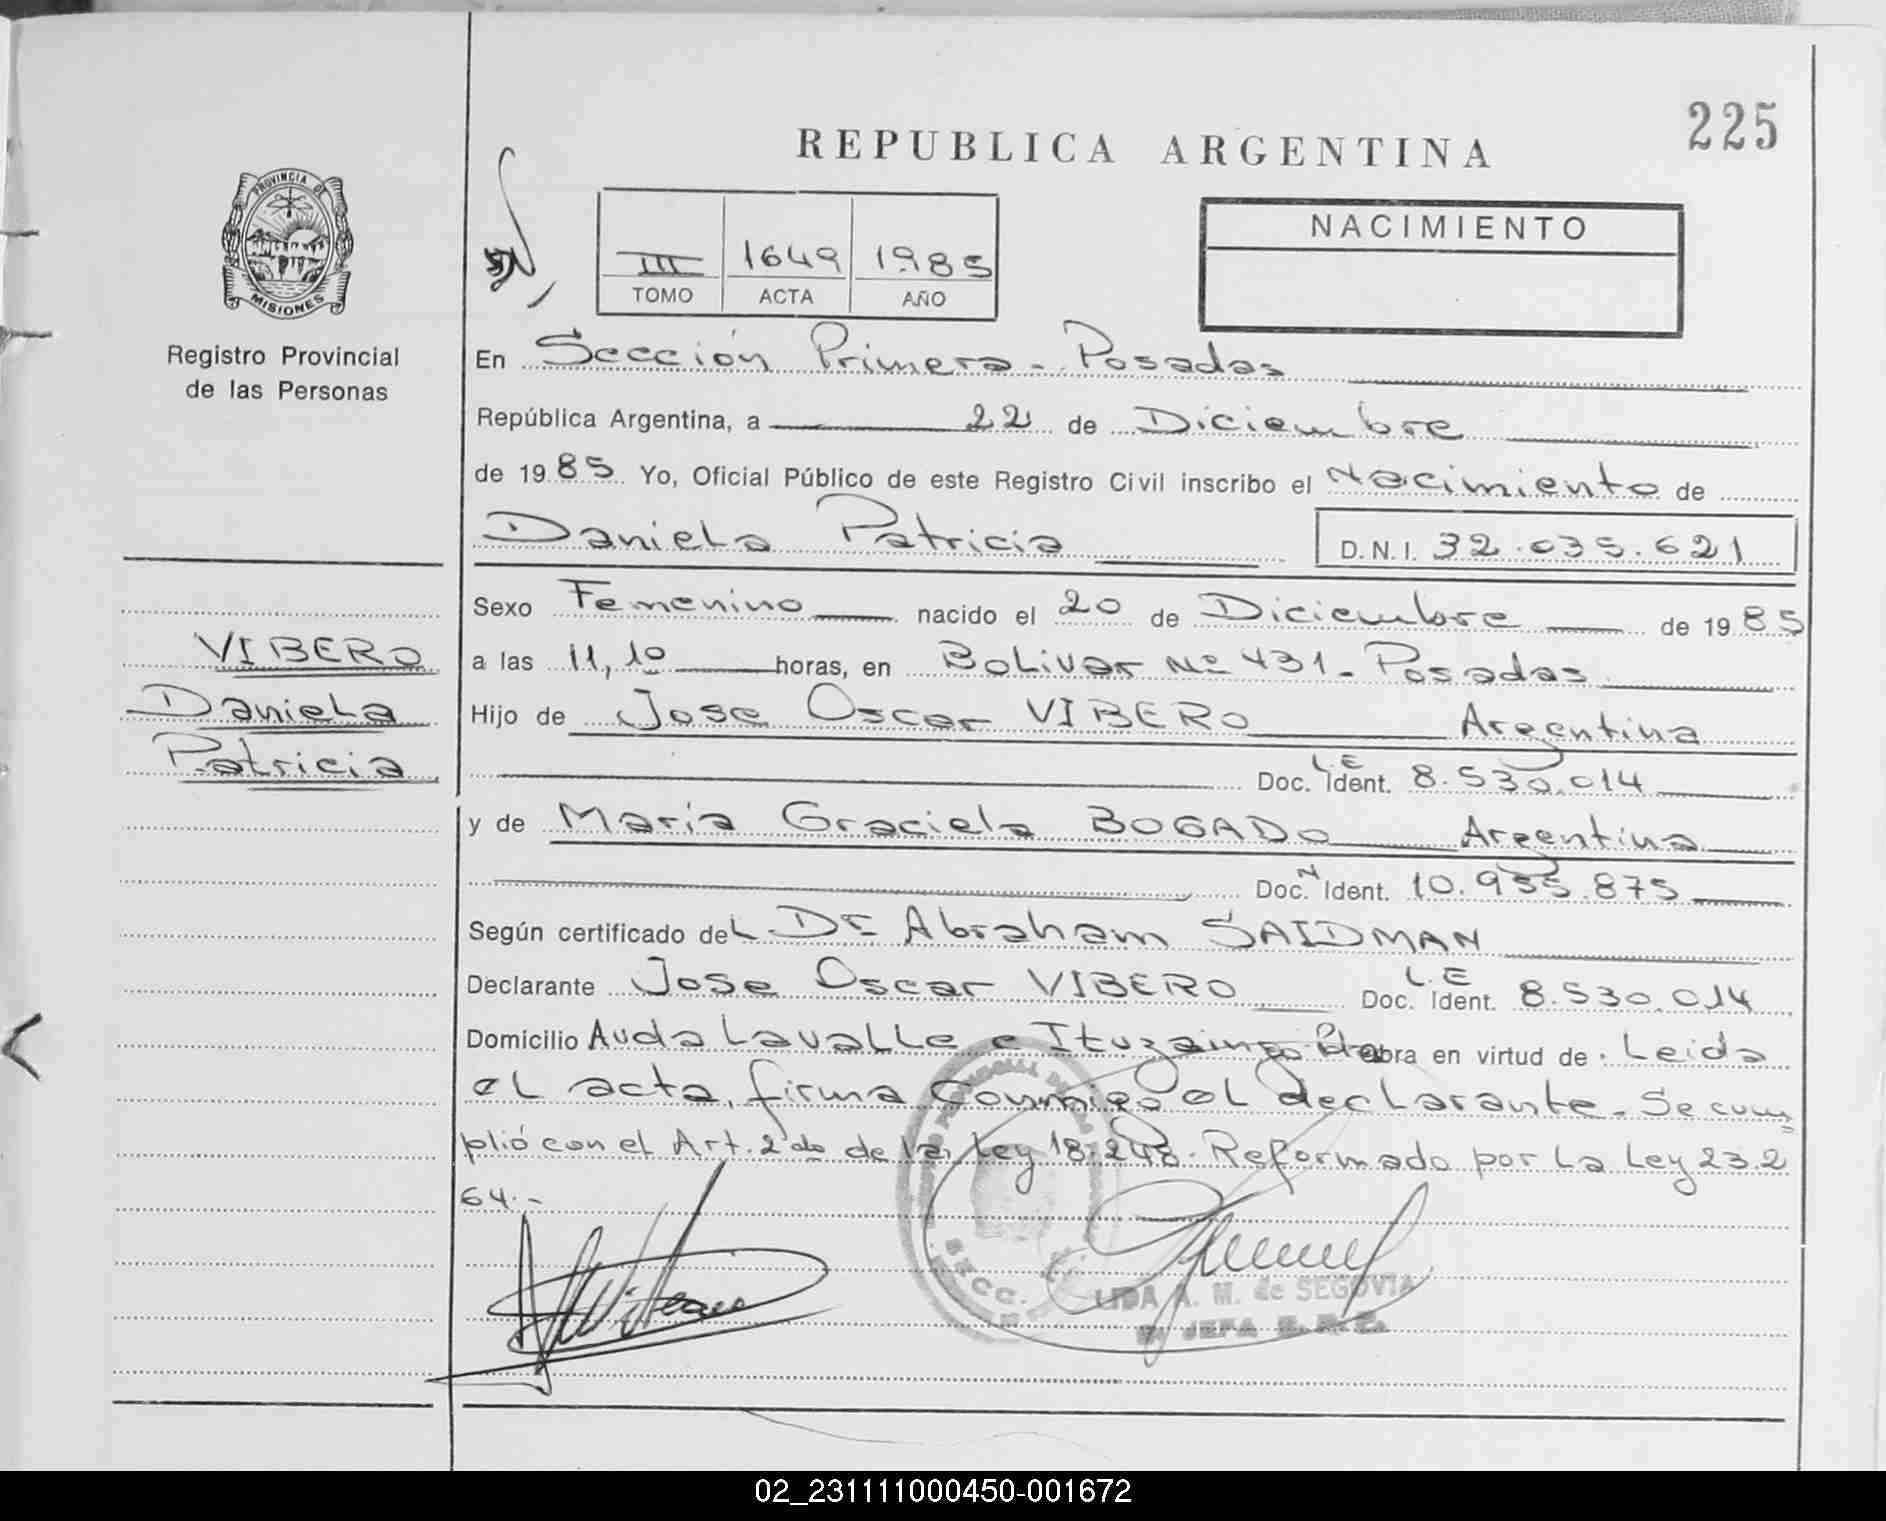 225
REPUBLICA ARGENTINA
PROVINCIA DE
MISIONES
Registro Provincial
de las Personas
III 1649 1985
TOMO ACTA AÑO
NACIMIENTO
En Sección Primera - Posadas
República Argentina, a 22 de Diciembre
de 1985 Yo, Oficial Público de este Registro Civil inscribo el Nacimiento de
Daniela Patricia D.N.I. 32.035.621
Sexo Femenino nacido el 20 de Diciembre de 1985
VIBERO
Daniela
Patricia
a las 11,10 horas, en Bolivar Nº 431 - Posadas
Hijo de Jose Oscar VIBERO Argentina
Doc. L.E Ident. 8.530.014
y de Maria Graciela BOGADO Argentina
Doc. N Ident. 10.955.875
Según certificado del Dr Abraham SAIDMAN
Declarante Jose Oscar VIBERO Doc. L.E Ident. 8.530.014
Domicilio Avda Lavalle e Ituzaingo obra en virtud de . Leida
el acta, firma conmigo el declarante. Se cum
plió con el Art. 2do de la Ley 18.248. Reformado por la Ley 23.2
64.-
SECC.
LIDA A. M. de SEGOVIA
JEFA
02_231111000450-001672